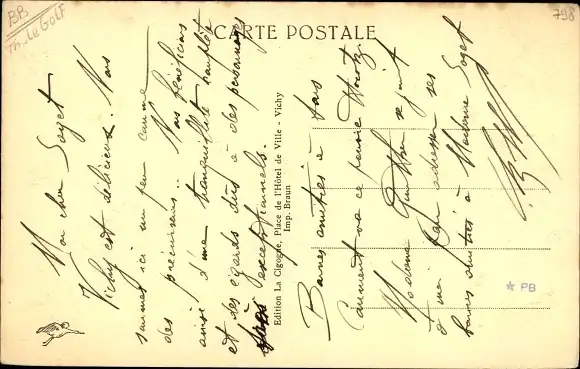 BB
Th. Le Golf
798
CARTE POSTALE
Mon cher Soyet
Vichy est délicieux. Nous
sommes ici un peu comme
des précurseurs.. Nous bénéficions
ainsi d'une tranquillité complète
et des égards dûs à des personnages
exceptionnels.
Edition La Cigogne, Place de l'Hôtel de Ville - Vichy
Imp. Braun
Bonnes amitiés à tous
Comment va ce pauvre
Madame se joint
à moi pour adresser ses
bonnes amitiés à Madame Soyet
* PB